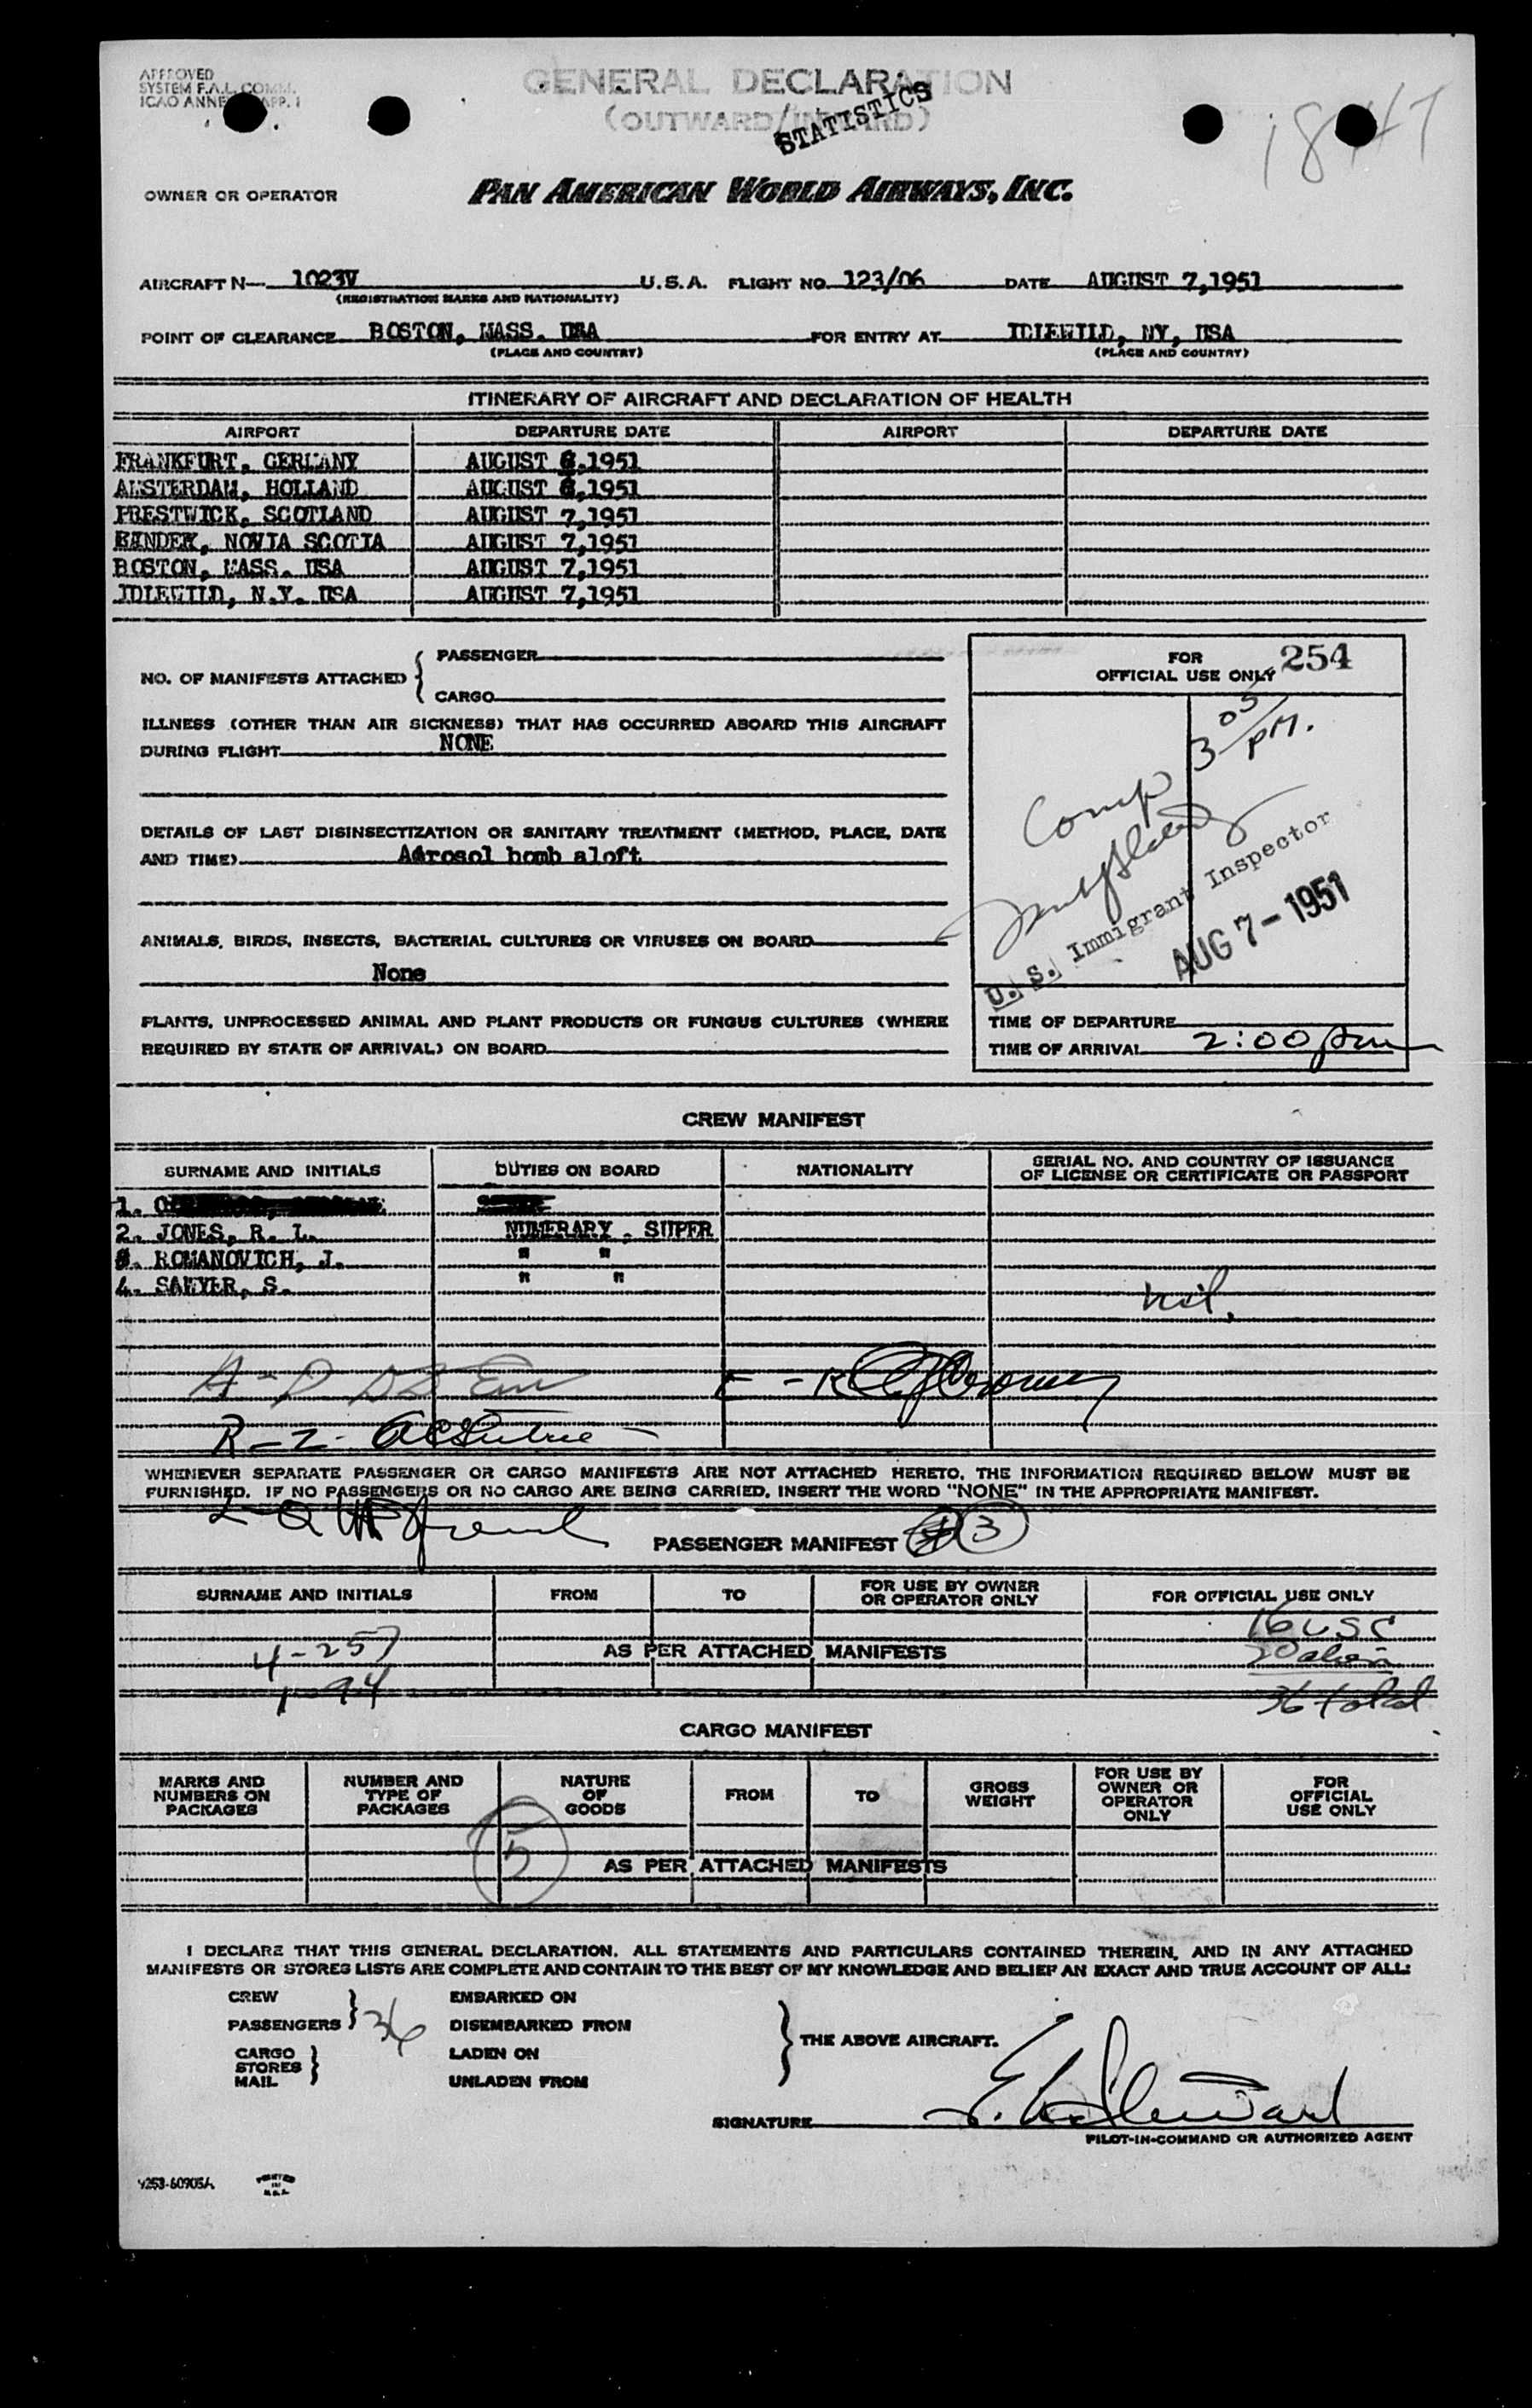 APPROVED
SYSTEM F.A.L. COMM.
ICAO ANNE APP. 1
GENERAL DECLARATION
(OUTWARD/INWARD)
STATISTICS
OWNER OR OPERATOR PAN AMERICAN WORLD AIRWAYS, INC.
AIRCRAFT N— 1023V U.S.A. FLIGHT NO. 123/06 DATE AUGUST 7,1951
(REGISTRATION MARKS AND NATIONALITY)
POINT OF CLEARANCE BOSTON, MASS. USA FOR ENTRY AT IDLEWILD, NY, USA
(PLACE AND COUNTRY) (PLACE AND COUNTRY)
ITINERARY OF AIRCRAFT AND DECLARATION OF HEALTH
AIRPORT DEPARTURE DATE AIRPORT DEPARTURE DATE
FRANKFURT, GERMANY AUGUST 6,1951
AMSTERDAM, HOLLAND AUGUST 6,1951
PRESTWICK, SCOTLAND AUGUST 7,1951
NOVIA SCOTIA AUGUST 7,1951
BOSTON, MASS. USA AUGUST 7,1951
IDLEWILD, N.Y. USA AUGUST 7,1951
NO. OF MANIFESTS ATTACHED { PASSENGER
CARGO
ILLNESS (OTHER THAN AIR SICKNESS) THAT HAS OCCURRED ABOARD THIS AIRCRAFT
DURING FLIGHT NONE
DETAILS OF LAST DISINSECTIZATION OR SANITARY TREATMENT (METHOD, PLACE, DATE
AND TIME) Aerosol bomb aloft
ANIMALS, BIRDS, INSECTS, BACTERIAL CULTURES OR VIRUSES ON BOARD
None
PLANTS, UNPROCESSED ANIMAL AND PLANT PRODUCTS OR FUNGUS CULTURES (WHERE
REQUIRED BY STATE OF ARRIVAL) ON BOARD
FOR
OFFICIAL USE ONLY 254
3 05/PM.
Comp
U. S. Immigrant Inspector
AUG 7 - 1951
TIME OF DEPARTURE
TIME OF ARRIVAL 2:00 pm
CREW MANIFEST
SURNAME AND INITIALS DUTIES ON BOARD NATIONALITY SERIAL NO. AND COUNTRY OF ISSUANCE
OF LICENSE OR CERTIFICATE OR PASSPORT
1.
2. JONES, R. L. NUMERARY, SUPER
3. ROMANOVICH, J. " "
4. SAWYER, S. " "
nil.
R-2-
WHENEVER SEPARATE PASSENGER OR CARGO MANIFESTS ARE NOT ATTACHED HERETO, THE INFORMATION REQUIRED BELOW MUST BE
FURNISHED. IF NO PASSENGERS OR NO CARGO ARE BEING CARRIED, INSERT THE WORD "NONE" IN THE APPROPRIATE MANIFEST.
PASSENGER MANIFEST 3
SURNAME AND INITIALS FROM TO FOR USE BY OWNER
OR OPERATOR ONLY FOR OFFICIAL USE ONLY
16 USC
4-257 AS PER ATTACHED MANIFESTS 20 alien
1-94 36 total
CARGO MANIFEST
MARKS AND
NUMBERS ON
PACKAGES NUMBER AND
TYPE OF
PACKAGES NATURE
OF
GOODS FROM TO GROSS
WEIGHT FOR USE BY
OWNER OR
OPERATOR
ONLY FOR
OFFICIAL
USE ONLY
5
AS PER ATTACHED MANIFESTS
I DECLARE THAT THIS GENERAL DECLARATION, ALL STATEMENTS AND PARTICULARS CONTAINED THEREIN, AND IN ANY ATTACHED
MANIFESTS OR STORES LISTS ARE COMPLETE AND CONTAIN TO THE BEST OF MY KNOWLEDGE AND BELIEF AN EXACT AND TRUE ACCOUNT OF ALL:
CREW EMBARKED ON
PASSENGERS } 36 DISEMBARKED FROM
CARGO LADEN ON
STORES
MAIL UNLADEN FROM
THE ABOVE AIRCRAFT.
SIGNATURE
PILOT-IN-COMMAND OR AUTHORIZED AGENT
PRINTED
IN
U.S.A.